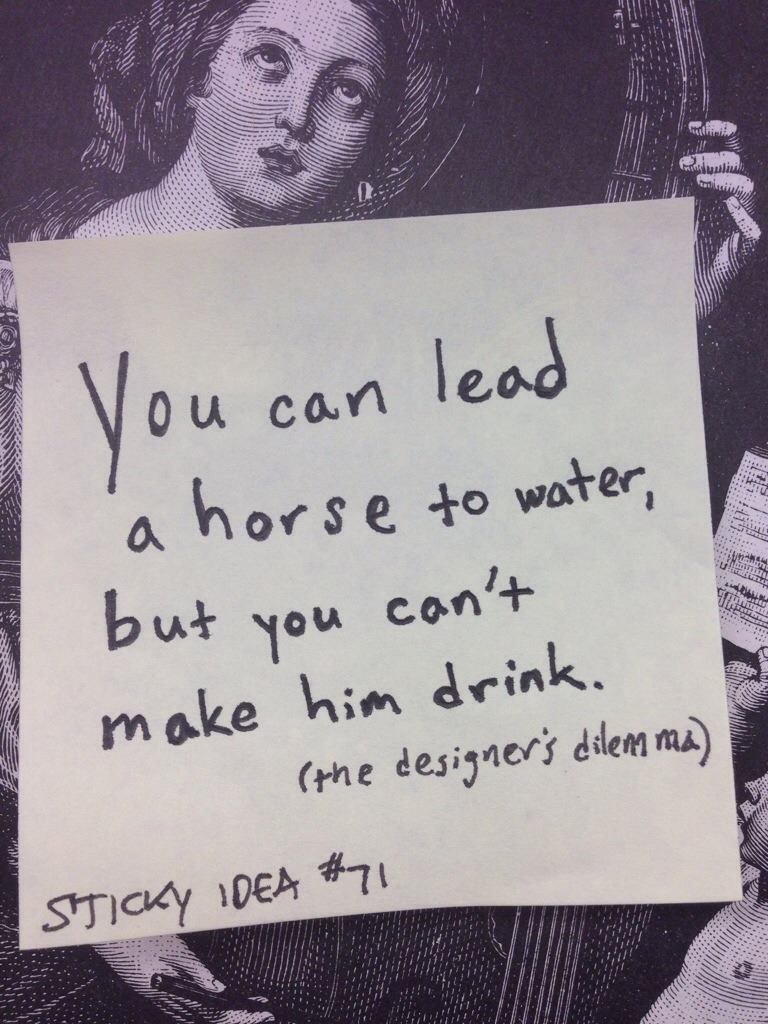 You can lead
a horse to water,
but you can't
make him drink.
(the designer's dilemma)
STICKY IDEA #71